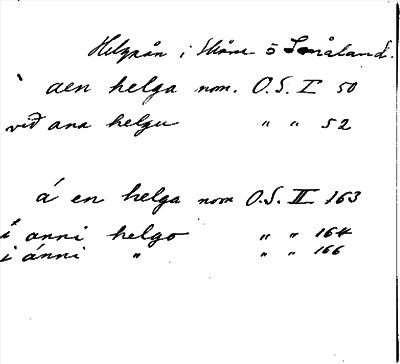 Helgeån i Skåne o Småland.
aen helga nom. O.S. I 50
við ana helgu " " 52
á en helga nom O.S. III 163
í anni helgo " " 164
i ánni " " " 166